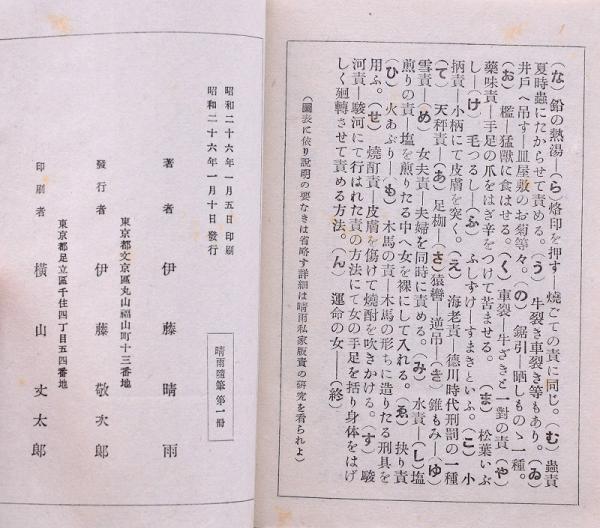 (な) 鉛の熱湯―(ら) 烙印を押す―燒ごての責に同じ。(む) 蟲責
夏時蟲にたからせて責める。(う) 牛裂き車裂き等もあり。(ゐ)
井戸へ吊す―皿屋敷のお菊等々。(の) 鋸引―晒しもの丶一種。
(お) 檻―猛獸に食はせる。(く) 車裂―牛ざきと一對の責 (や)
藥味責―手足の爪をはぎ辛をつけて苦ませる。(ま) 松葉いぶ
し―(け) 毛つるし―(ふ) ふしずけ―すまきといふ。(こ) 小
柄責―小柄にて皮膚を突く。(え) 海老責―德川時代刑罰の一種
(て) 天秤責―(あ) 足枷―(さ) 猿轡―逆吊―(き) 錐もみ―(ゆ)
雪責―(め) 女夫責―夫婦を同時に責める。(み) 水責―(し) 塩
煎りの責―塩を煎りたる中へ女を裸にして入れる。(ゑ) 抉り責
(ひ) 火あぶり―(も) 木馬の責―木馬の形ちに造りたる刑具を
用ふ。(せ) 燒酊責―皮膚を傷けて燒酎を吹きかける。(す) 駿
河責―駿河にて行はれた責の方法にて女の手足を括り身体をはげ
しく廻轉させて責める方法。(ん) 運命の女――(終)
(圖表に依り說明の要なきは省略す詳細は晴雨私家版責の研究を看られよ)
晴雨隨筆 第一冊
昭和二十六年一月五日 印刷
昭和二十六年一月十日 發行
著者 伊藤晴雨
東京都文京區丸山福山町十三番地
發行者 伊藤敬次郎
東京都足立區千住四丁目五四番地
印刷者 橫山丈太郎